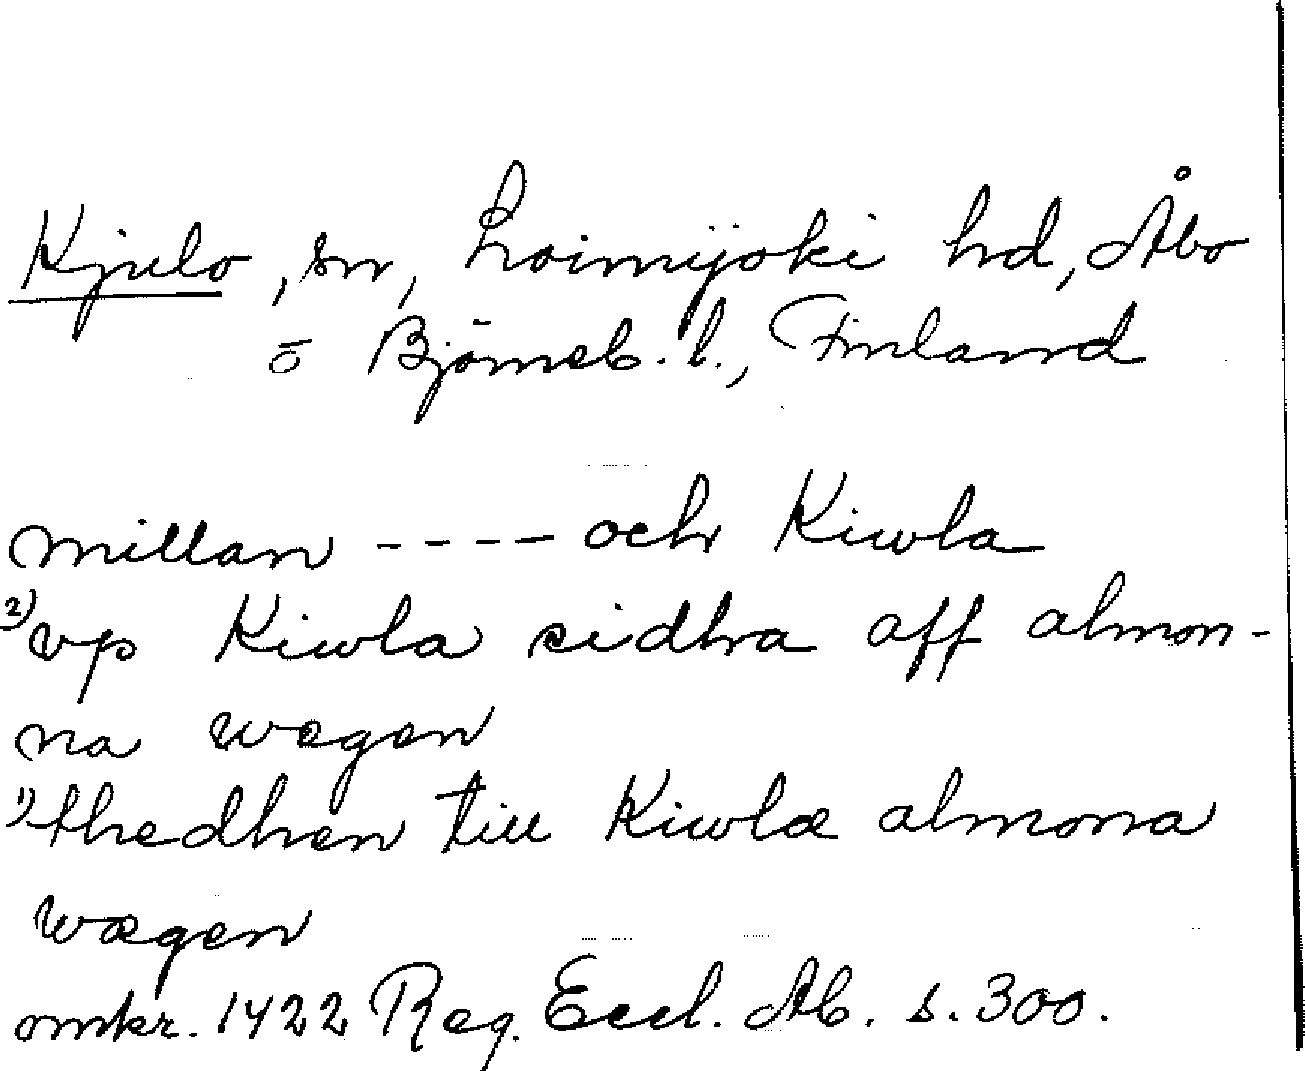 Kjulo, sn, Loimijoki hd, Åbo
o Björneb. l., Finland
millan ---- och Kiwla
2) vp Kiwla sidhra aff almon-
na wægen
1) thedhen till Kiwlæ almona
wægen
omkr. 1422 Reg. Eccl. Ab. s. 300.